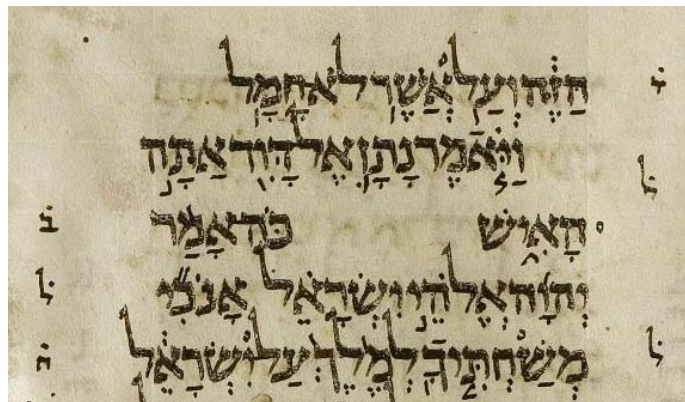 הַזֶּה וְעַל אֲשֶׁר לֹא חָמָל
וַיֹּאמֶר נָתָן אֶל דָּוִד אַתָּה
ל
הָאִישׁ כֹּה אָמַר ב
יְהוָה אֱלֹהֵי יִשְׂרָאֵל אָנֹכִי ל
ל מְשַׁחְתִּיךָ לְמֶלֶךְ עַל יִשְׂרָאֵל